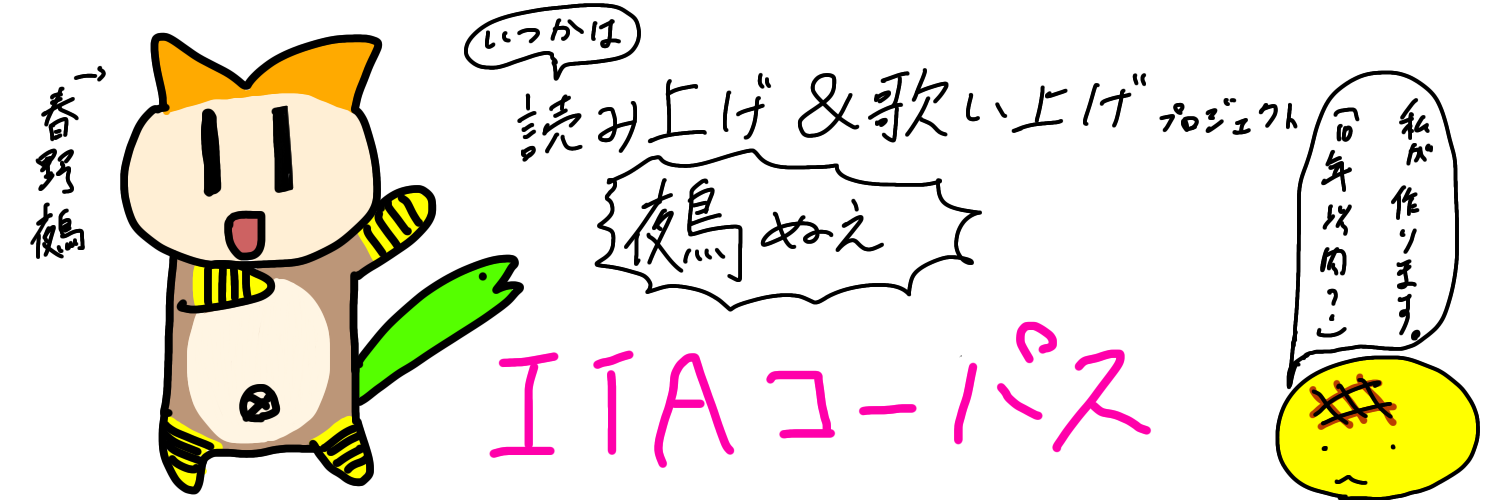 →
春野鵺
いつかは
読み上げ&歌い上げプロジェクト
鵺ぬえ
ITAコーパス
私が作ります。
(10年以内?)